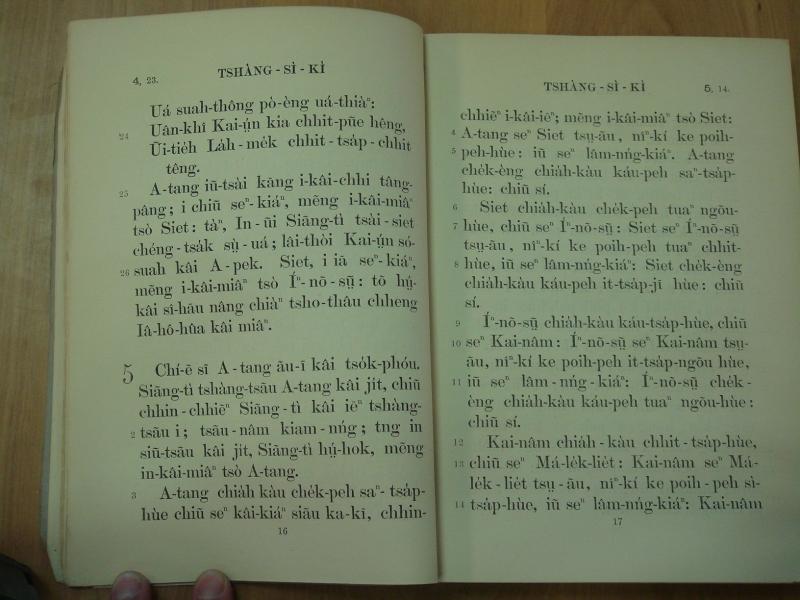 4, 23.
TSHÀNG - SÌ - KÌ
Uá suah-thông pò-èng uá-thiàⁿ:
24 Uân-khî Kai-ṳ́n kia chhit-pūe hêng,
Ūi-tie̍h La̍h-me̍k chhit-tsa̍p-chhit
têng.
25 A-tang iū-tsài kāng i-kâi-chhi tâng-
pâng; i chiū seⁿ-kiáⁿ, mēng i-kâi-miâⁿ
tsò Siet: tàⁿ, In-ūi Siāng-tì tsài-siet
chéng-tsák sṳ̀-uá; lâi-thòi Kai-ṳ́n só-
26 suah kâi A-pek. Siet, i iā seⁿ-kiáⁿ,
mēng i-kâi-miâⁿ tsò Íⁿ-nō-sṳ̄: tō hṳ́-
kâi sî-hāu nâng chiàⁿ tsho-thâu chheng
Iâ-hô-hûa kâi miâⁿ.
5 Chí-ē sĭ A-tang āu-ī kâi tso̍k-phóu.
Siāng-tì tshàng-tsāu A-tang kâi ji̍t, chiū
chhin-chhiēⁿ Siāng-tì kâi iēⁿ tshàng-
2 tsāu i; tsāu-nâm kiam-nńg; tng in
siū-tsāu kâi ji̍t, Siāng-tì hṳ́-hok, mēng
in-kâi-miâⁿ tsò A-tang.
3 A-tang chia̍h kàu che̍k-peh saⁿ-tsa̍p-
hùe chiū seⁿ kâi-kiáⁿ siāu ka-kī, chhin-
16
TSHÀNG - SÌ - KÌ
5, 14.
chhiēⁿ i-kâi-iēⁿ; mēng i-kâi-miâⁿ tsò Siet:
4 A-tang seⁿ Siet tsṳ-āu, nîⁿ-kí ke poih-
5 peh-hùe: iū seⁿ lâm-nńg-kiáⁿ. A-tang
che̍k-èng chia̍h-kàu káu-peh saⁿ-tsa̍p-
hùe: chiū sí.
6 Siet chia̍h-kàu che̍k-peh tuaⁿ ngōu-
7 hùe, chiū seⁿ Íⁿ-nō-sṳ̄: Siet seⁿ Íⁿ-nō-sṳ̄
tsṳ-āu, nîⁿ-kí ke poih-peh tuaⁿ chhit-
8 hùe, iū seⁿ lâm-nńg-kiáⁿ: Siet che̍k-èng
chia̍h-kàu káu-peh it-tsa̍p-jī hùe: chiū
sí.
9 Íⁿ-nō-sṳ̄ chia̍h-kàu káu-tsa̍p-hùe, chiū
10 se​ⁿ Kai-nâm: Íⁿ-nō-sṳ̄ seⁿ Kai-nâm tsṳ-
āu, nîⁿ-kí ke poih-peh it-tsa̍p-ngōu hùe,
11 iū seⁿ lâm-nńg-kiáⁿ: Íⁿ-nō-sṳ̄ che̍k-
èng chia̍h-kàu káu-peh tuaⁿ ngōu-hùe:
chiū sí.
12 Kai-nâm chia̍h-kàu chhit-tsa̍p-hùe,
13 chiū seⁿ Má-le̍k-lie̍t: Kai-nâm seⁿ Má-
le̍k-lie̍t tsṳ-āu, nîⁿ-kí ke poih-peh sì-
14 tsa̍p-hùe, iū seⁿ lâm-nńg-kiáⁿ: Kai-nâm
17